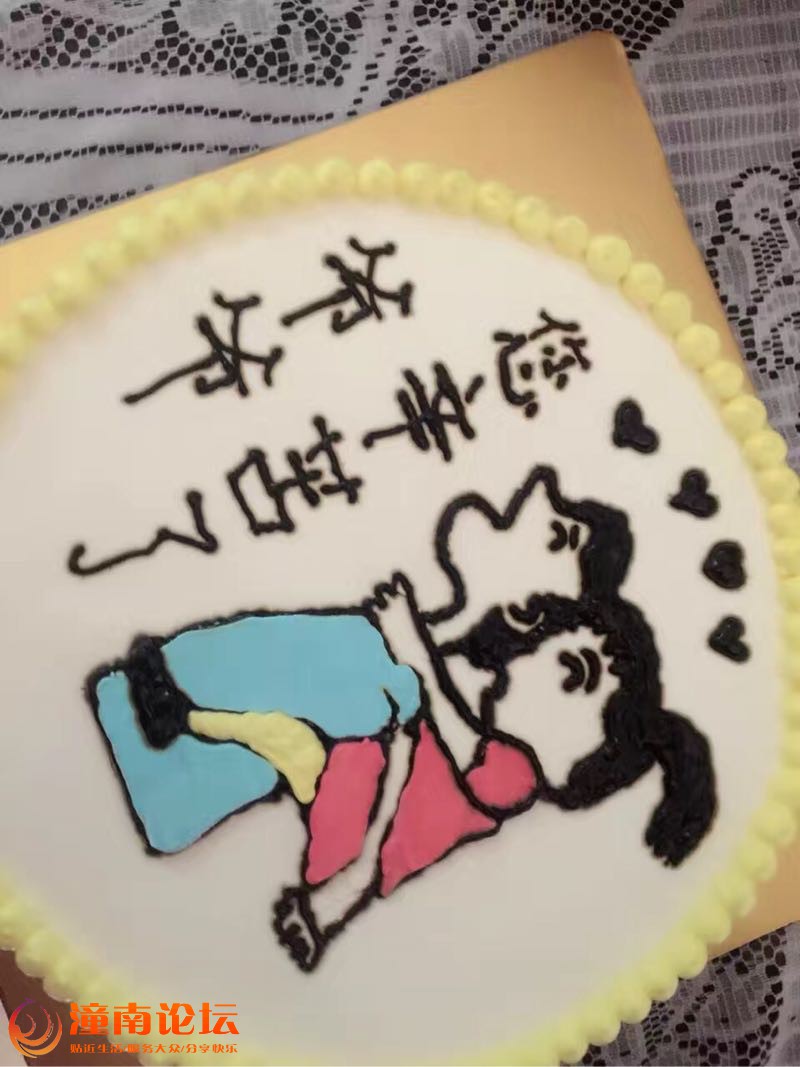 爷爷
您辛苦了
潼南论坛
贴近生活/服务大众/分享快乐